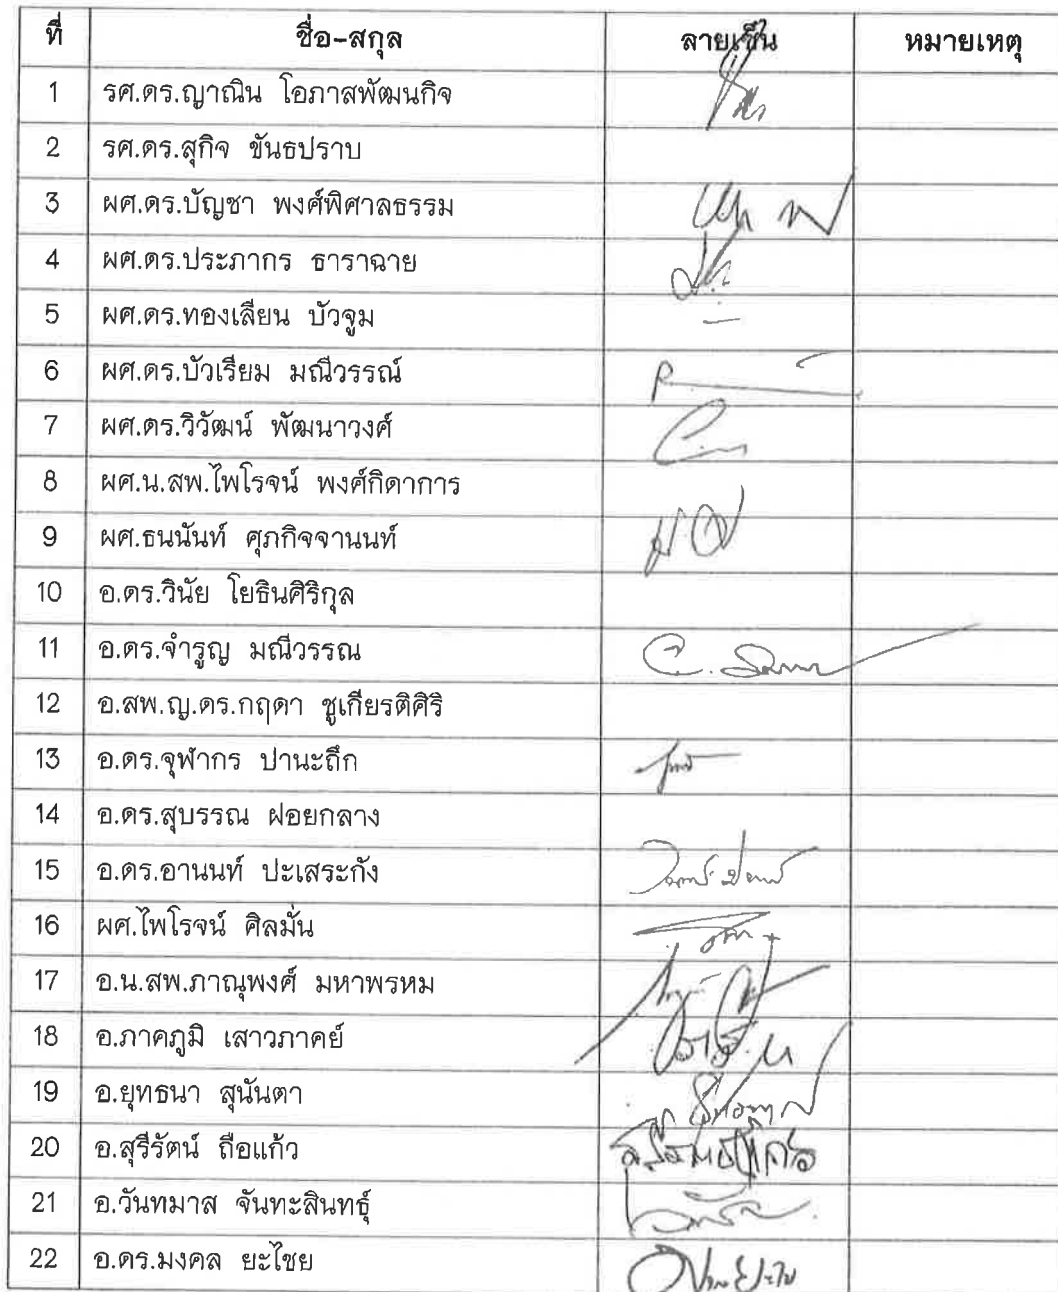 ที่ ชื่อ-สกุล ลายเซ็น หมายเหตุ
1 รศ.ดร.ญาณิน โอภาสพัฒนกิจ
2 รศ.ดร.สุกิจ ขันธปราบ
3 ผศ.ดร.บัญชา พงศ์พิศาลธรรม
4 ผศ.ดร.ประภากร ธาราฉาย
5 ผศ.ดร.ทองเลียน บัวจูม
6 ผศ.ดร.บัวเรียม มณีวรรณ์
7 ผศ.ดร.วิวัฒน์ พัฒนาวงศ์
8 ผศ.น.สพ.ไพโรจน์ พงศ์กิดาการ
9 ผศ.ธนนันท์ ศุภกิจจานนท์
10 อ.ดร.วินัย โยธินศิริกุล
11 อ.ดร.จำรูญ มณีวรรณ
12 อ.สพ.ญ.ดร.กฤดา ชูเกียรติศิริ
13 อ.ดร.จุฬากร ปานะถึก
14 อ.ดร.สุบรรณ ฝอยกลาง
15 อ.ดร.อานนท์ ปะเสระกัง
16 ผศ.ไพโรจน์ ศิลมั่น
17 อ.น.สพ.ภาณุพงศ์ มหาพรหม
18 อ.ภาคภูมิ เสาวภาคย์
19 อ.ยุทธนา สุนันตา
20 อ.สุรีรัตน์ ถือแก้ว
21 อ.วันทมาส จันทะสินทธุ์
22 อ.ดร.มงคล ยะไชย